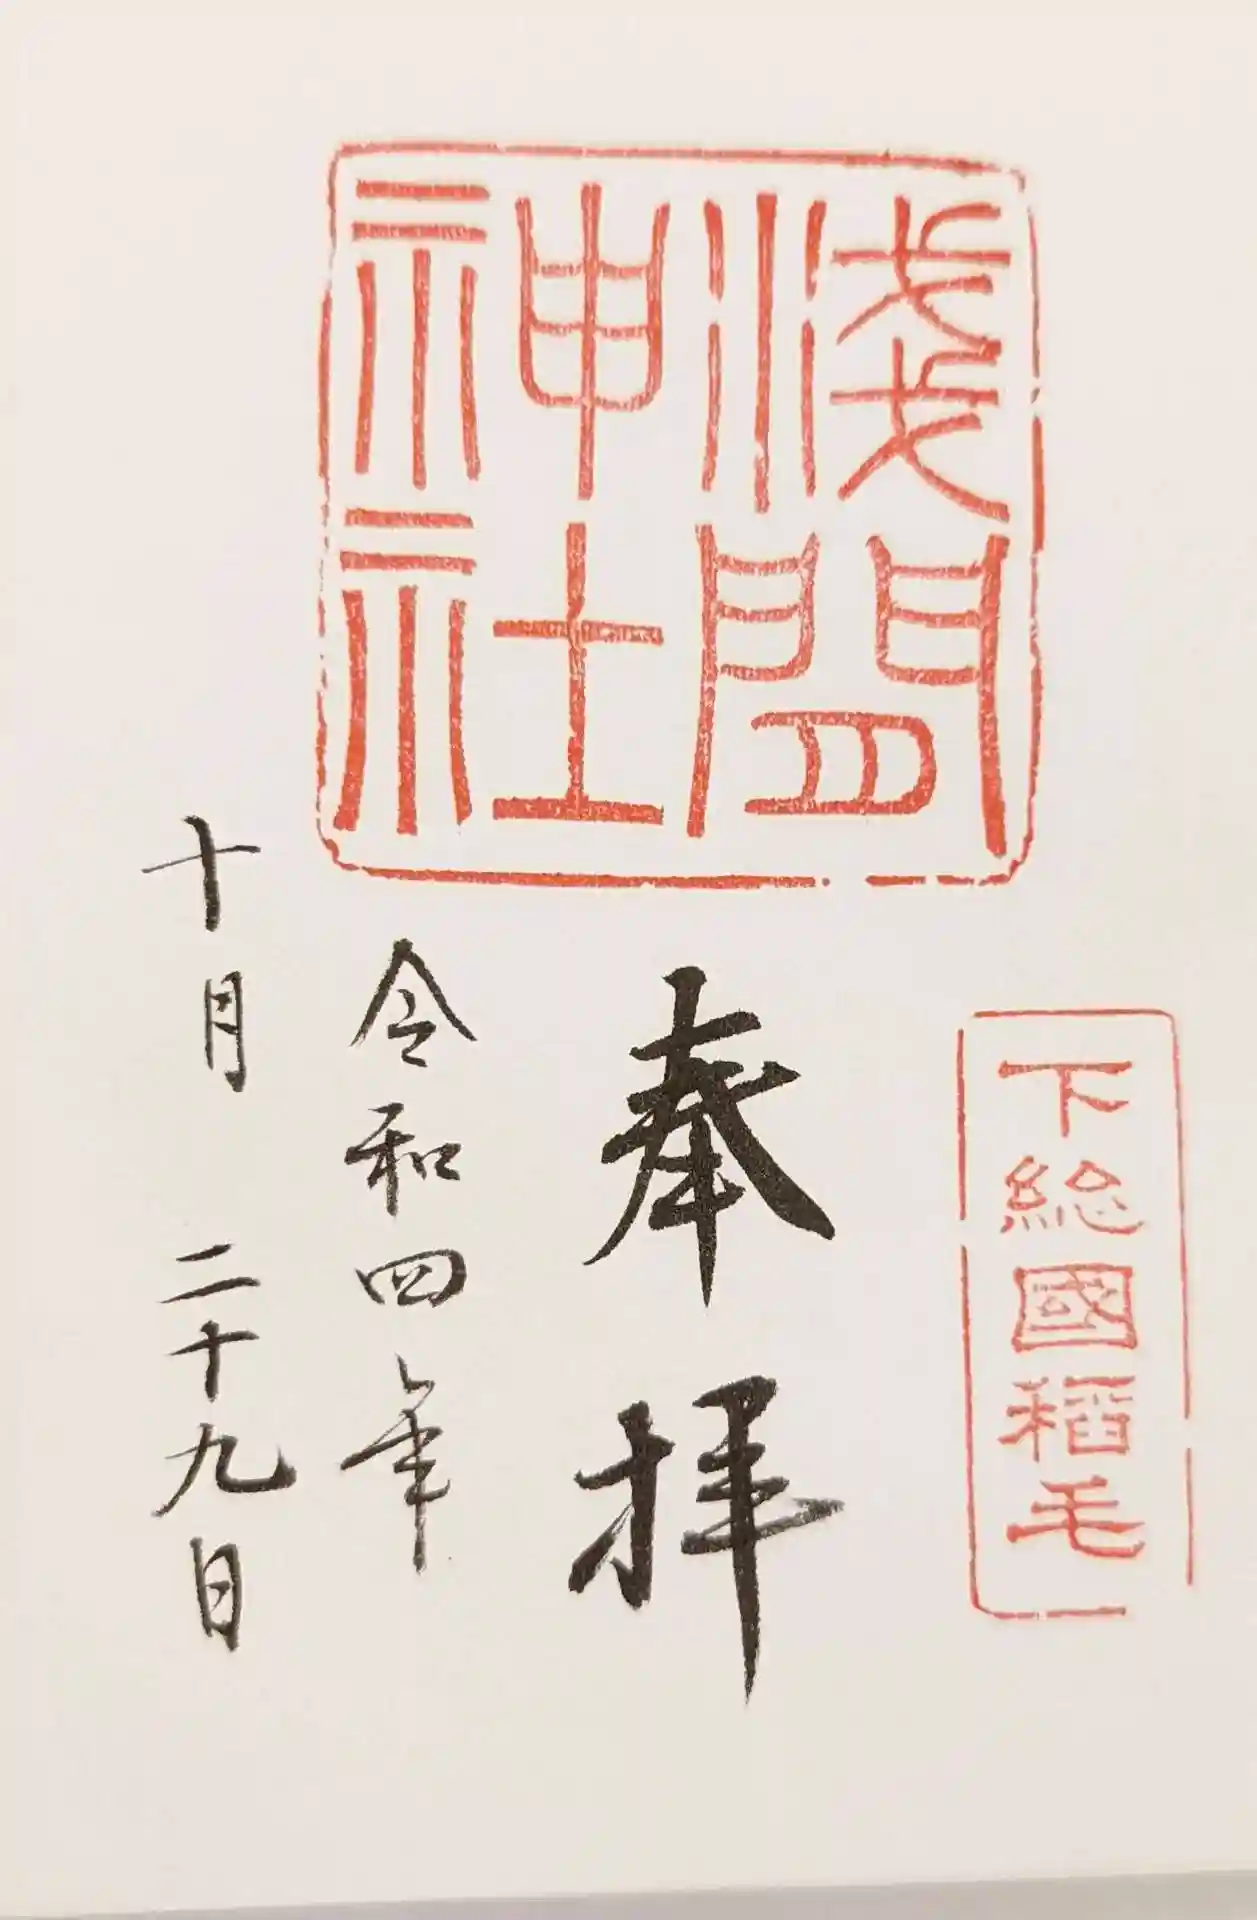 下総國稻毛
淺間神社
奉拝
令和四年
十月二十九日